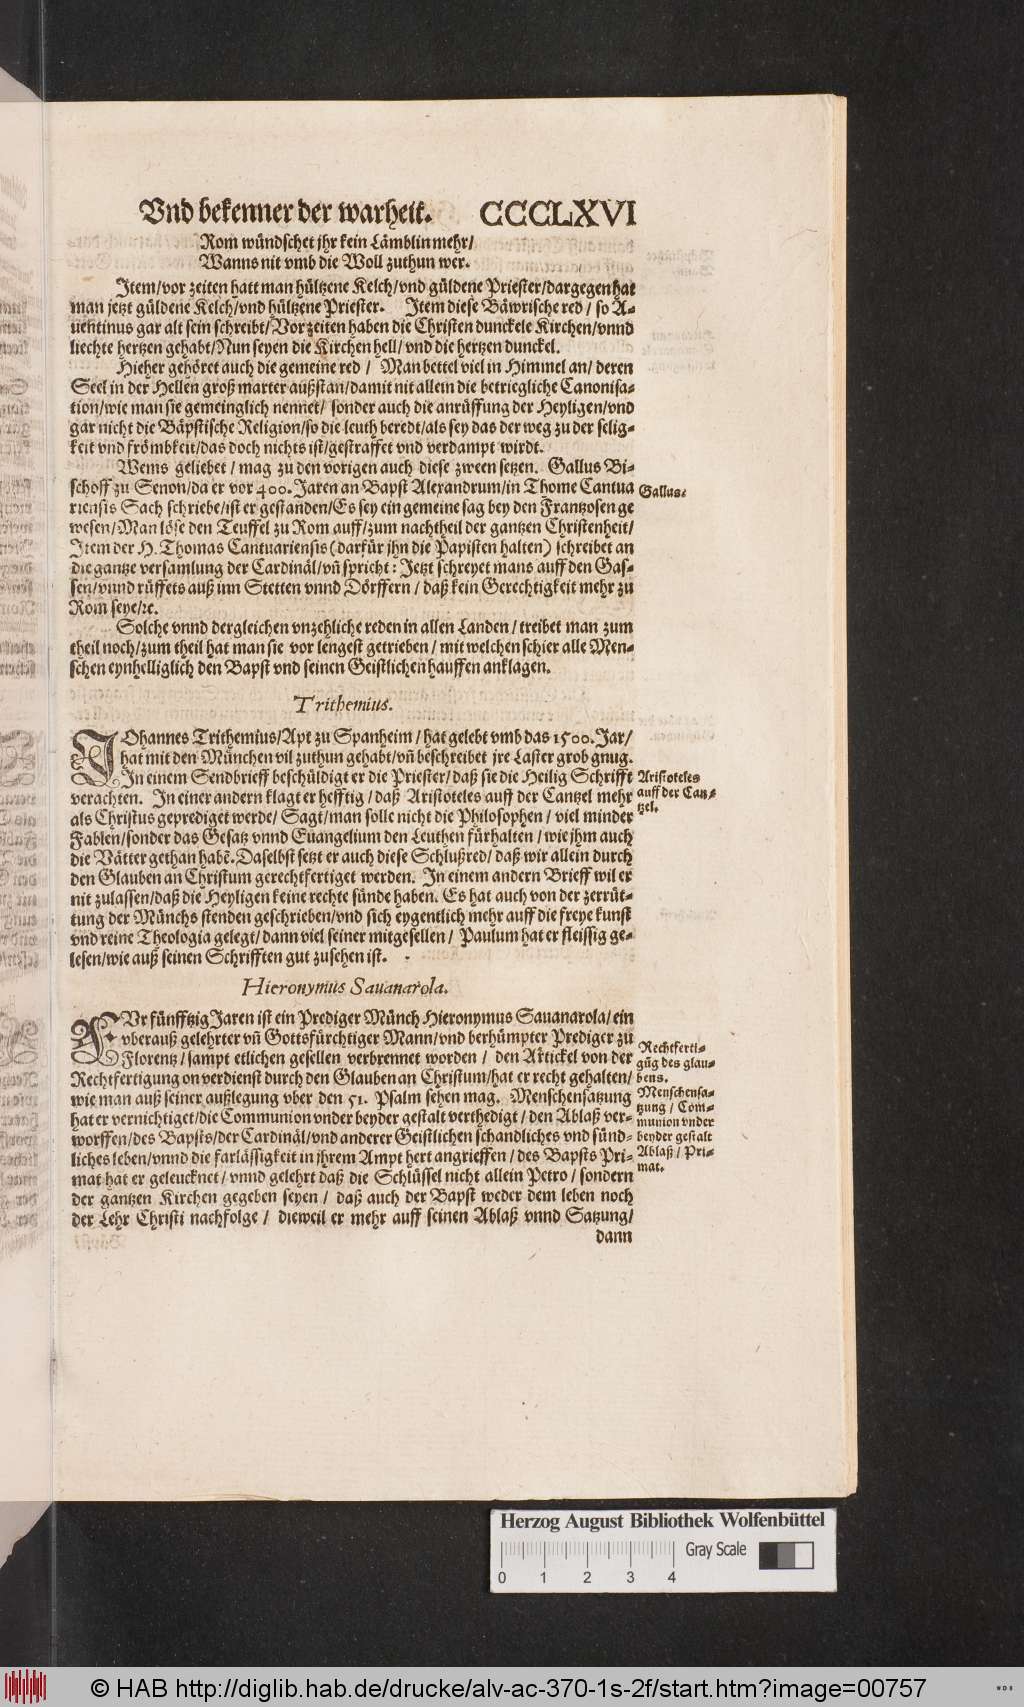 Vnd bekenner der warheit. CCCCLXVI
Rom wündschet jhr kein Lämblin mehr/
Wanns nit vmb die Woll zuthun wer.
Item/vor zeiten hatt man hültzene Kelch/vnd güldene Priester/dargegen hat
man jetzt güldene Kelch/vnd hültzene Priester. Item diese Bäwrische red/ so A-
uentinus gar alt sein schreibt/Vorzeiten haben die Christen dunckele Kirchen/vnnd
liechte hertzen gehabt/Nun seyen die Kirchen hell/vnd die hertzen dunckel.
Hieher gehöret auch die gemeine red/ Man bettel viel in Himmel an/deren
Seel in der Hellen groß marter außstan/damit nit allein die betriegliche Canonisa-
tion/wie man sie gemeinglich nennet/ sonder auch die anrüffung der Heyligen/vnd
gar nicht die Bäpstische Religion/so die leuth beredt/als sey das der weg zu der selig-
keit vnd frömbkeit/das doch nichts ist/gestraffet vnd verdampt wirdt.
Wems geliebet/mag zu den vorigen auch diese zween setzen. Gallus Bi-
schoff zu Senon/da er vor 400. Jaren an Bapst Alexandrum/in Thome Cantua
riensis Sach schriebe/ist er gestanden/Es sey ein gemeine sag bey den Frantzosen ge
wesen/Man löse den Teuffel zu Rom auff/zum nachtheil der gantzen Christenheit/
Item der H. Thomas Cantuariensis (darfür jhn die Papisten halten) schreibet an
die gantze versamlung der Cardinäl/vñ spricht: Jetzt schreyet mans auff den Gas-
sen/vnnd rüffets auß inn Stetten vnnd Dörffern/daß kein Gerechtigkeit mehr zu
Rom seye/ꝛc.
Gallus.
Solche vnnd dergleichen vnzehliche reden in allen Landen/treibet man zum
theil noch/zum theil hat man sie vor lengest getrieben/mit welchen schier alle Men-
schen eynhelliglich den Bapst vnd seinen Geistlichen hauffen anklagen.
Trithemius.
JOhannes Trithemius/Apt zu Spanheim/hat gelebt vmb das 1500. Jar/
hat mit den München vil zuthun gehabt/vñ beschreibet jre Laster grob gnug.
In einem Sendbrieff beschüldigt er die Priester/daß sie die Heilig Schrifft
verachten. In einer andern klagt er hefftig/daß Aristoteles auff der Cantzel mehr
als Christus geprediget werde/ Sagt/man solle nicht die Philosophen/ viel minder
Fablen/sonder das Gesatz vnnd Euangelium den Leuthen fürhalten/wie jhm auch
die Vätter gethan habẽ. Daselbst setzt er auch diese Schlußred/daß wir allein durch
den Glauben an Christum gerechtfertiget werden. In einem andern Brieff wil er
nit zulassen/daß die Heyligen keine rechte sünde haben. Es hat auch von der zerrüt-
tung der Münchs stenden geschrieben/vnd sich eygentlich mehr auff die freye kunst
vnd reine Theologia gelegt/dann viel seiner mitgesellen/ Paulum hat er fleissig ge-
lesen/wie auß seinen Schrifften gut zusehen ist.
Aristoteles
auff der Can-
tzel.
Hieronymus Sauanarola.
FVr fünfftzig Jaren ist ein Prediger Münch Hieronymus Sauanarola/ein
vberauß gelehrter vñ Gottsfürchtiger Mann/vnd berhümpter Prediger zu
Florentz/sampt etlichen gesellen verbrennet worden/ den Artickel von der
Rechtfertigung on verdienst durch den Glauben an Christum/hat er recht gehalten/
wie man auß seiner außlegung vber den 51. Psalm sehen mag. Menschensatzung
hat er vernichtiget/die Communion vnder beyder gestalt verthedigt/den Ablaß ver-
worffen/des Bapsts/der Cardinäl/vnd anderer Geistlichen schandliches vnd sünd-
liches leben/vnnd die farlässigkeit in jhrem Ampt hert angrieffen/des Bapsts Pri-
mat hat er geleucknet/vnnd gelehrt daß die Schlüssel nicht allein Petro/sondern
der gantzen Kirchen gegeben seyen/ daß auch der Bapst weder dem leben noch
der Lehr Christi nachfolge/ dieweil er mehr auff seinen Ablaß vnnd Satzung/
dann
Rechtferti-
gũg des glau-
bens.
Menschensa-
tzung/Com-
munion vnder
beyder gestalt
Ablaß/Pri-
mat.
Herzog August Bibliothek Wolfenbüttel
Gray Scale
0 1 2 3 4
© HAB http://diglib.hab.de/drucke/alv-ac-370-1s-2f/start.htm?image=00757